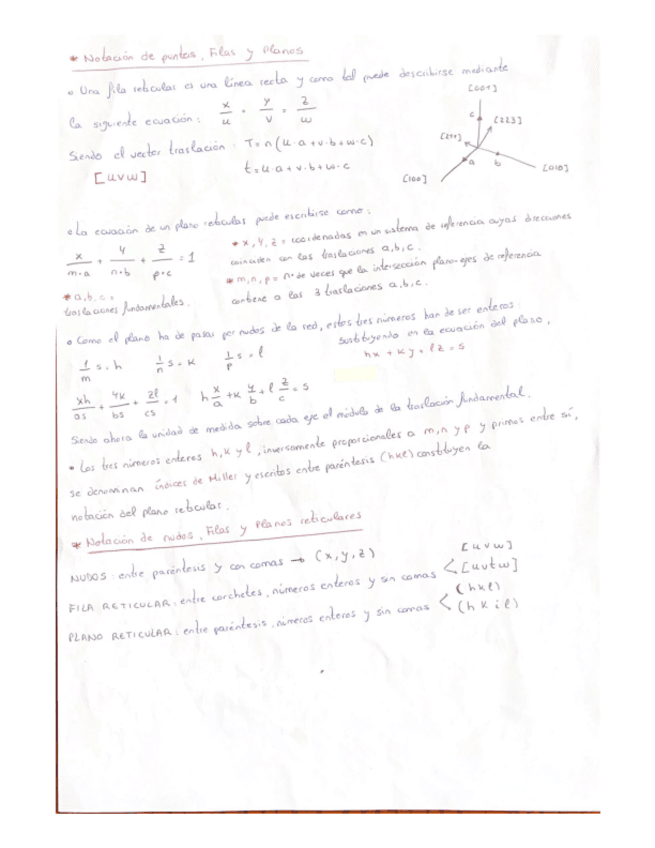 * Notación de puntos, Filas y Planos
• Una fila reticular es una línea recta y como tal puede describirse mediante
la siguiente ecuación: x/u = y/v = z/w
Siendo el vector traslación: T=n(u·a+v·b+w·c)
[uvw]
t=u·a+v·b+w·c
[001]
c
[223]
a
b
[010]
[100]
• La ecuación de un plano reticular puede escribirse como:
x/m·a + y/n·b + z/p·c = 1
* x, y, z = coordenadas en un sistema de referencia cuyas direcciones
coinciden con las traslaciones a,b,c.
* m,n,p = nº de veces que la intersección plano-ejes de referencia
contiene a las 3 traslaciones a,b,c.
* a,b,c =
traslaciones fundamentales.
• Como el plano ha de pasar por nudos de la red, estos tres números han de ser enteros:
1/m s=h 1/n s=k 1/p s=l
sustituyendo en la ecuación del plano,
hx + ky + lz = s
xh/as + yk/bs + zl/cs = 1 h x/a + k y/b + l z/c = s
Siendo ahora la unidad de medida sobre cada eje el módulo de la traslación fundamental.
• Los tres números enteros h, k y l, inversamente proporcionales a m,n y p y primos entre sí,
se denominan índices de Miller y escritos entre paréntesis (hkl) constituyen la
notación del plano reticular.
* Notación de nudos, Filas y Planos reticulares
NUDOS: entre paréntesis y con comas → (x,y,z)
FILA RETICULAR: entre corchetes, números enteros y sin comas < [uvw] [uvtw]
PLANO RETICULAR: entre paréntesis, números enteros y sin comas < (hkl) (hkil)